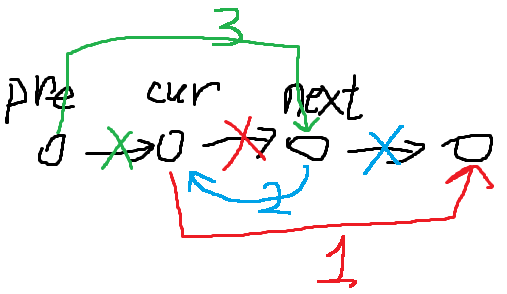 3
pre cur next
2
1